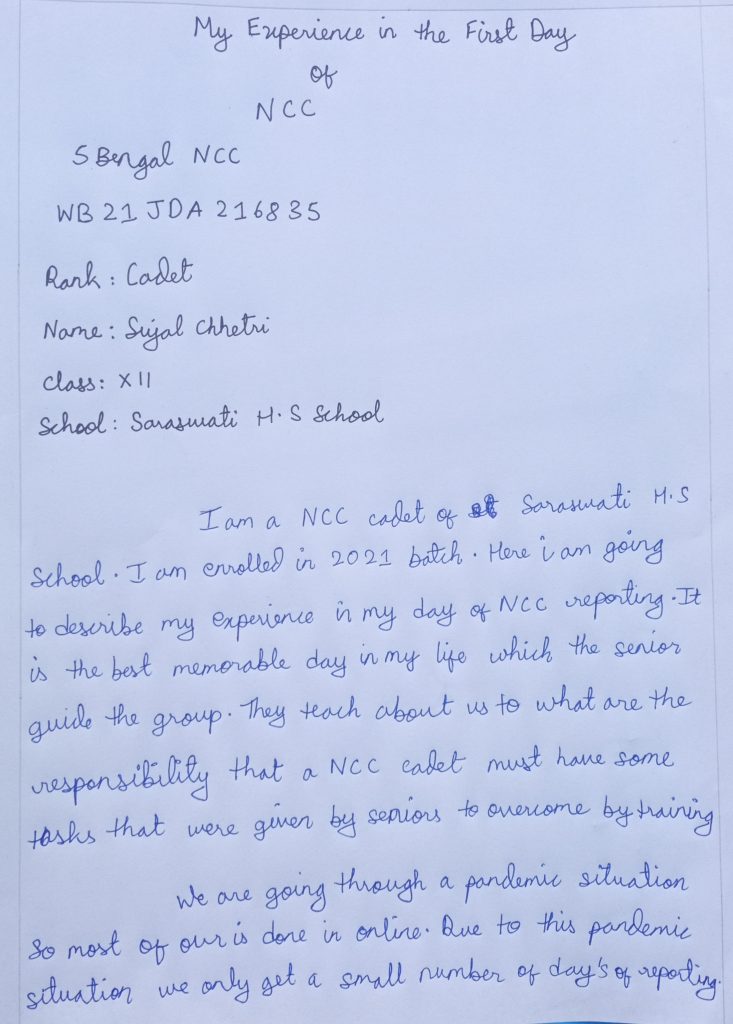 My Experience in the First Day
of
NCC
5 Bengal NCC
WB 21 JDA 216835
Rank : Cadet
Name : Sujal Chhetri
Class : XII
School : Saraswati H.S School
I am a NCC cadet of Saraswati H.S
School. I am enrolled in 2021 batch. Here i am going
to describe my experience in my day of NCC reporting. It
is the best memorable day in my life which the senior
guide the group. They teach about us to what are the
responsibility that a NCC cadet must have some
tasks that were given by seniors to overcome by training
We are going through a pandemic situation
So most of our is done in online. Due to this pandemic
situation we only get a small number of day's of reporting.